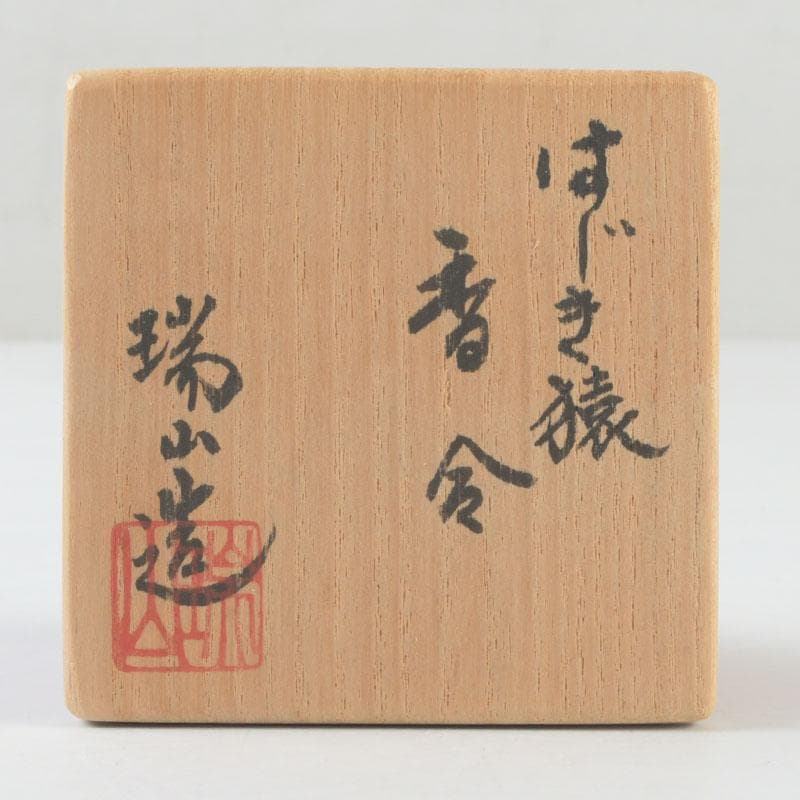 はじき猿
香合
瑞山造
瑞山